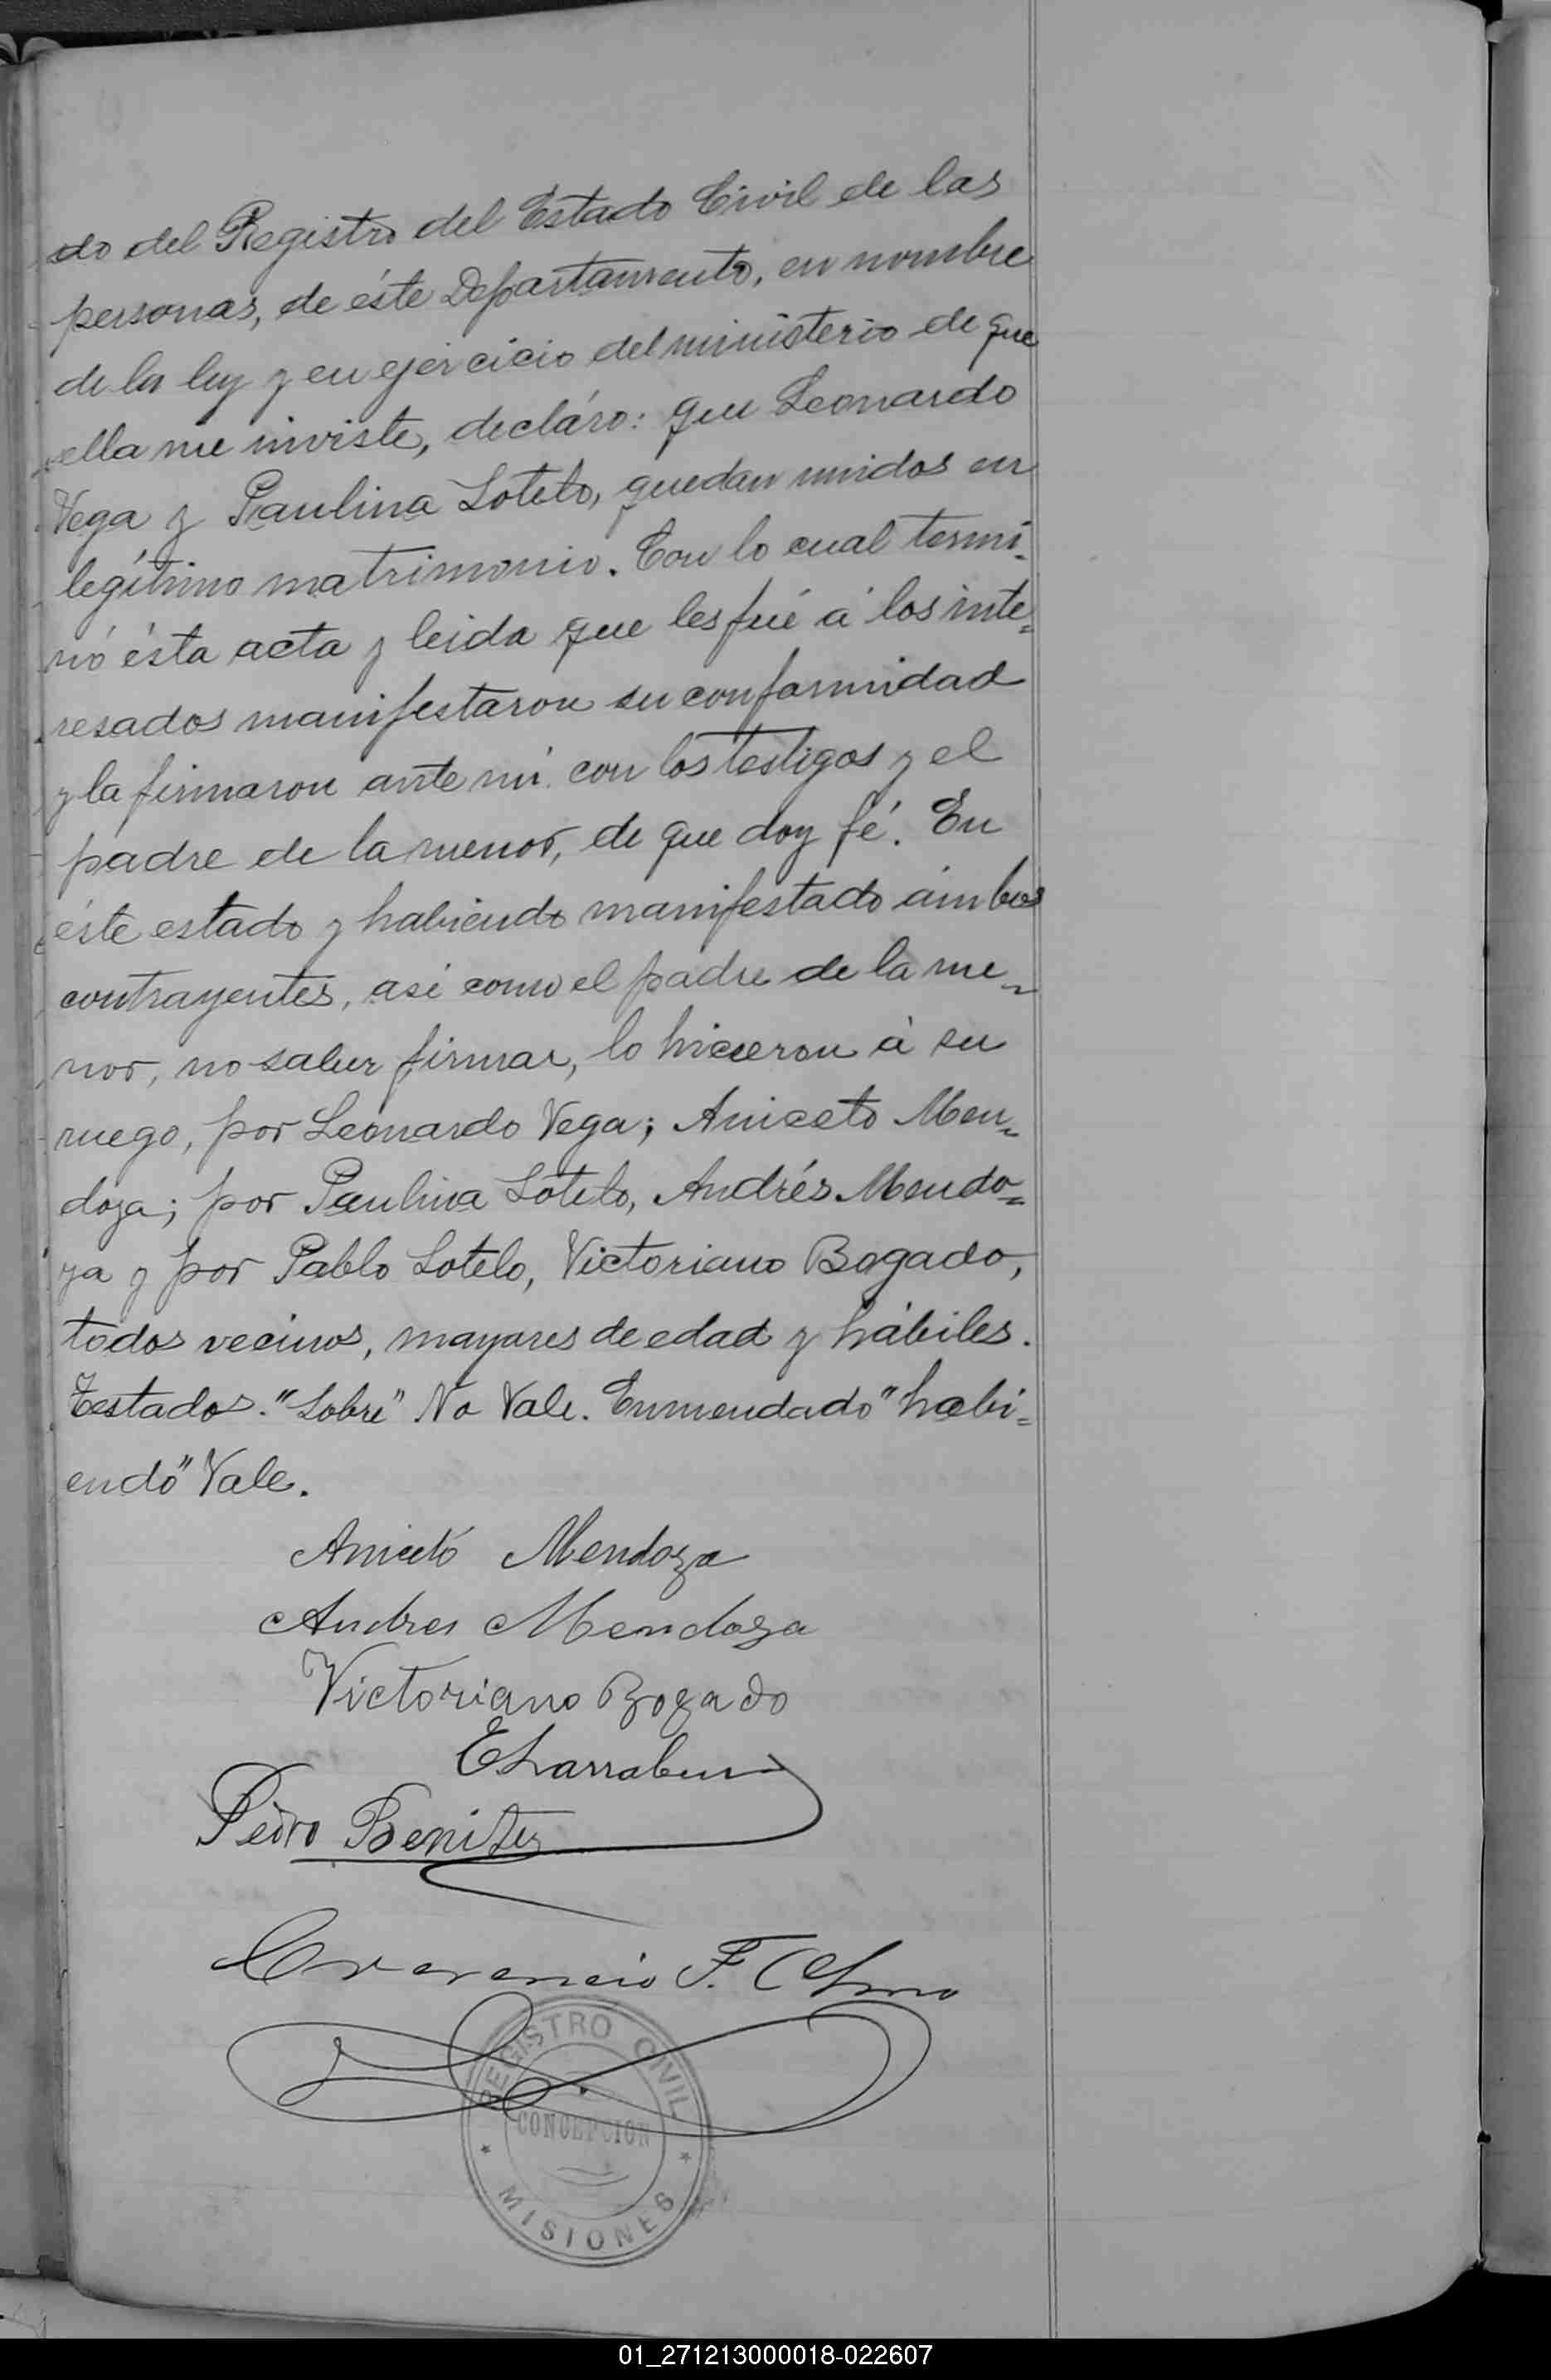 do del Registro del Estado Civil de las
personas, de éste Departamento, en nombre
de la ley y en ejercicio del ministerio de que
ella me inviste, decláro: que Leonardo
Vega y Paulina Sotelo, quedan unidos en
legítimo matrimonio. Con lo cual termi-
nó ésta acta y leida que les fué á los inte=
resados manifestaron su conformidad
y la firmaron ante mi con los testigos y el
padre de la menor, de que doy fé. En
éste estado y habiendo manifestado ámbos
contrayentes, asi como el padre de la me=
nor, no saber firmar, lo hicieron á su
ruego, por Leonardo Vega; Aniceto Men=
doza; por Paulina Sotelo, Andrés Mendo=
za y por Pablo Sotelo, Victoriano Bogado,
todos vecinos, mayores de edad y hábiles.
Testado. "Sobre" No Vale. Enmendado "habi=
endo" Vale.
Aniceto Mendoza
Andres Mendoza
Victoriano Bogado
Pedro Benitez
F.
REGISTRO CIVIL
CONCEPCION
MISIONES
01_271213000018-022607